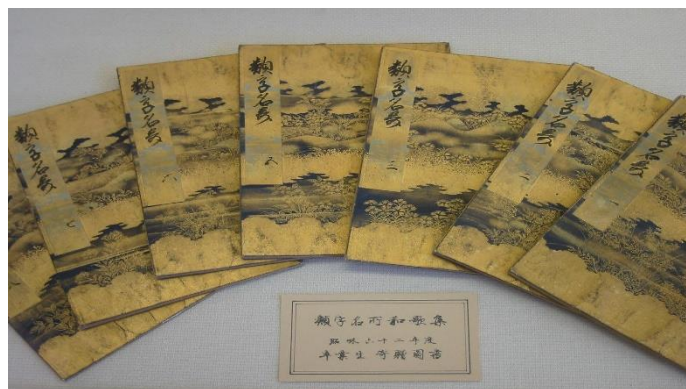 類字名所
類字名所
類字名所
類字名所 三
類字名所 二
類字名所 一
類字名所和歌集
昭和六十二年度
卒業生 寄贈図書